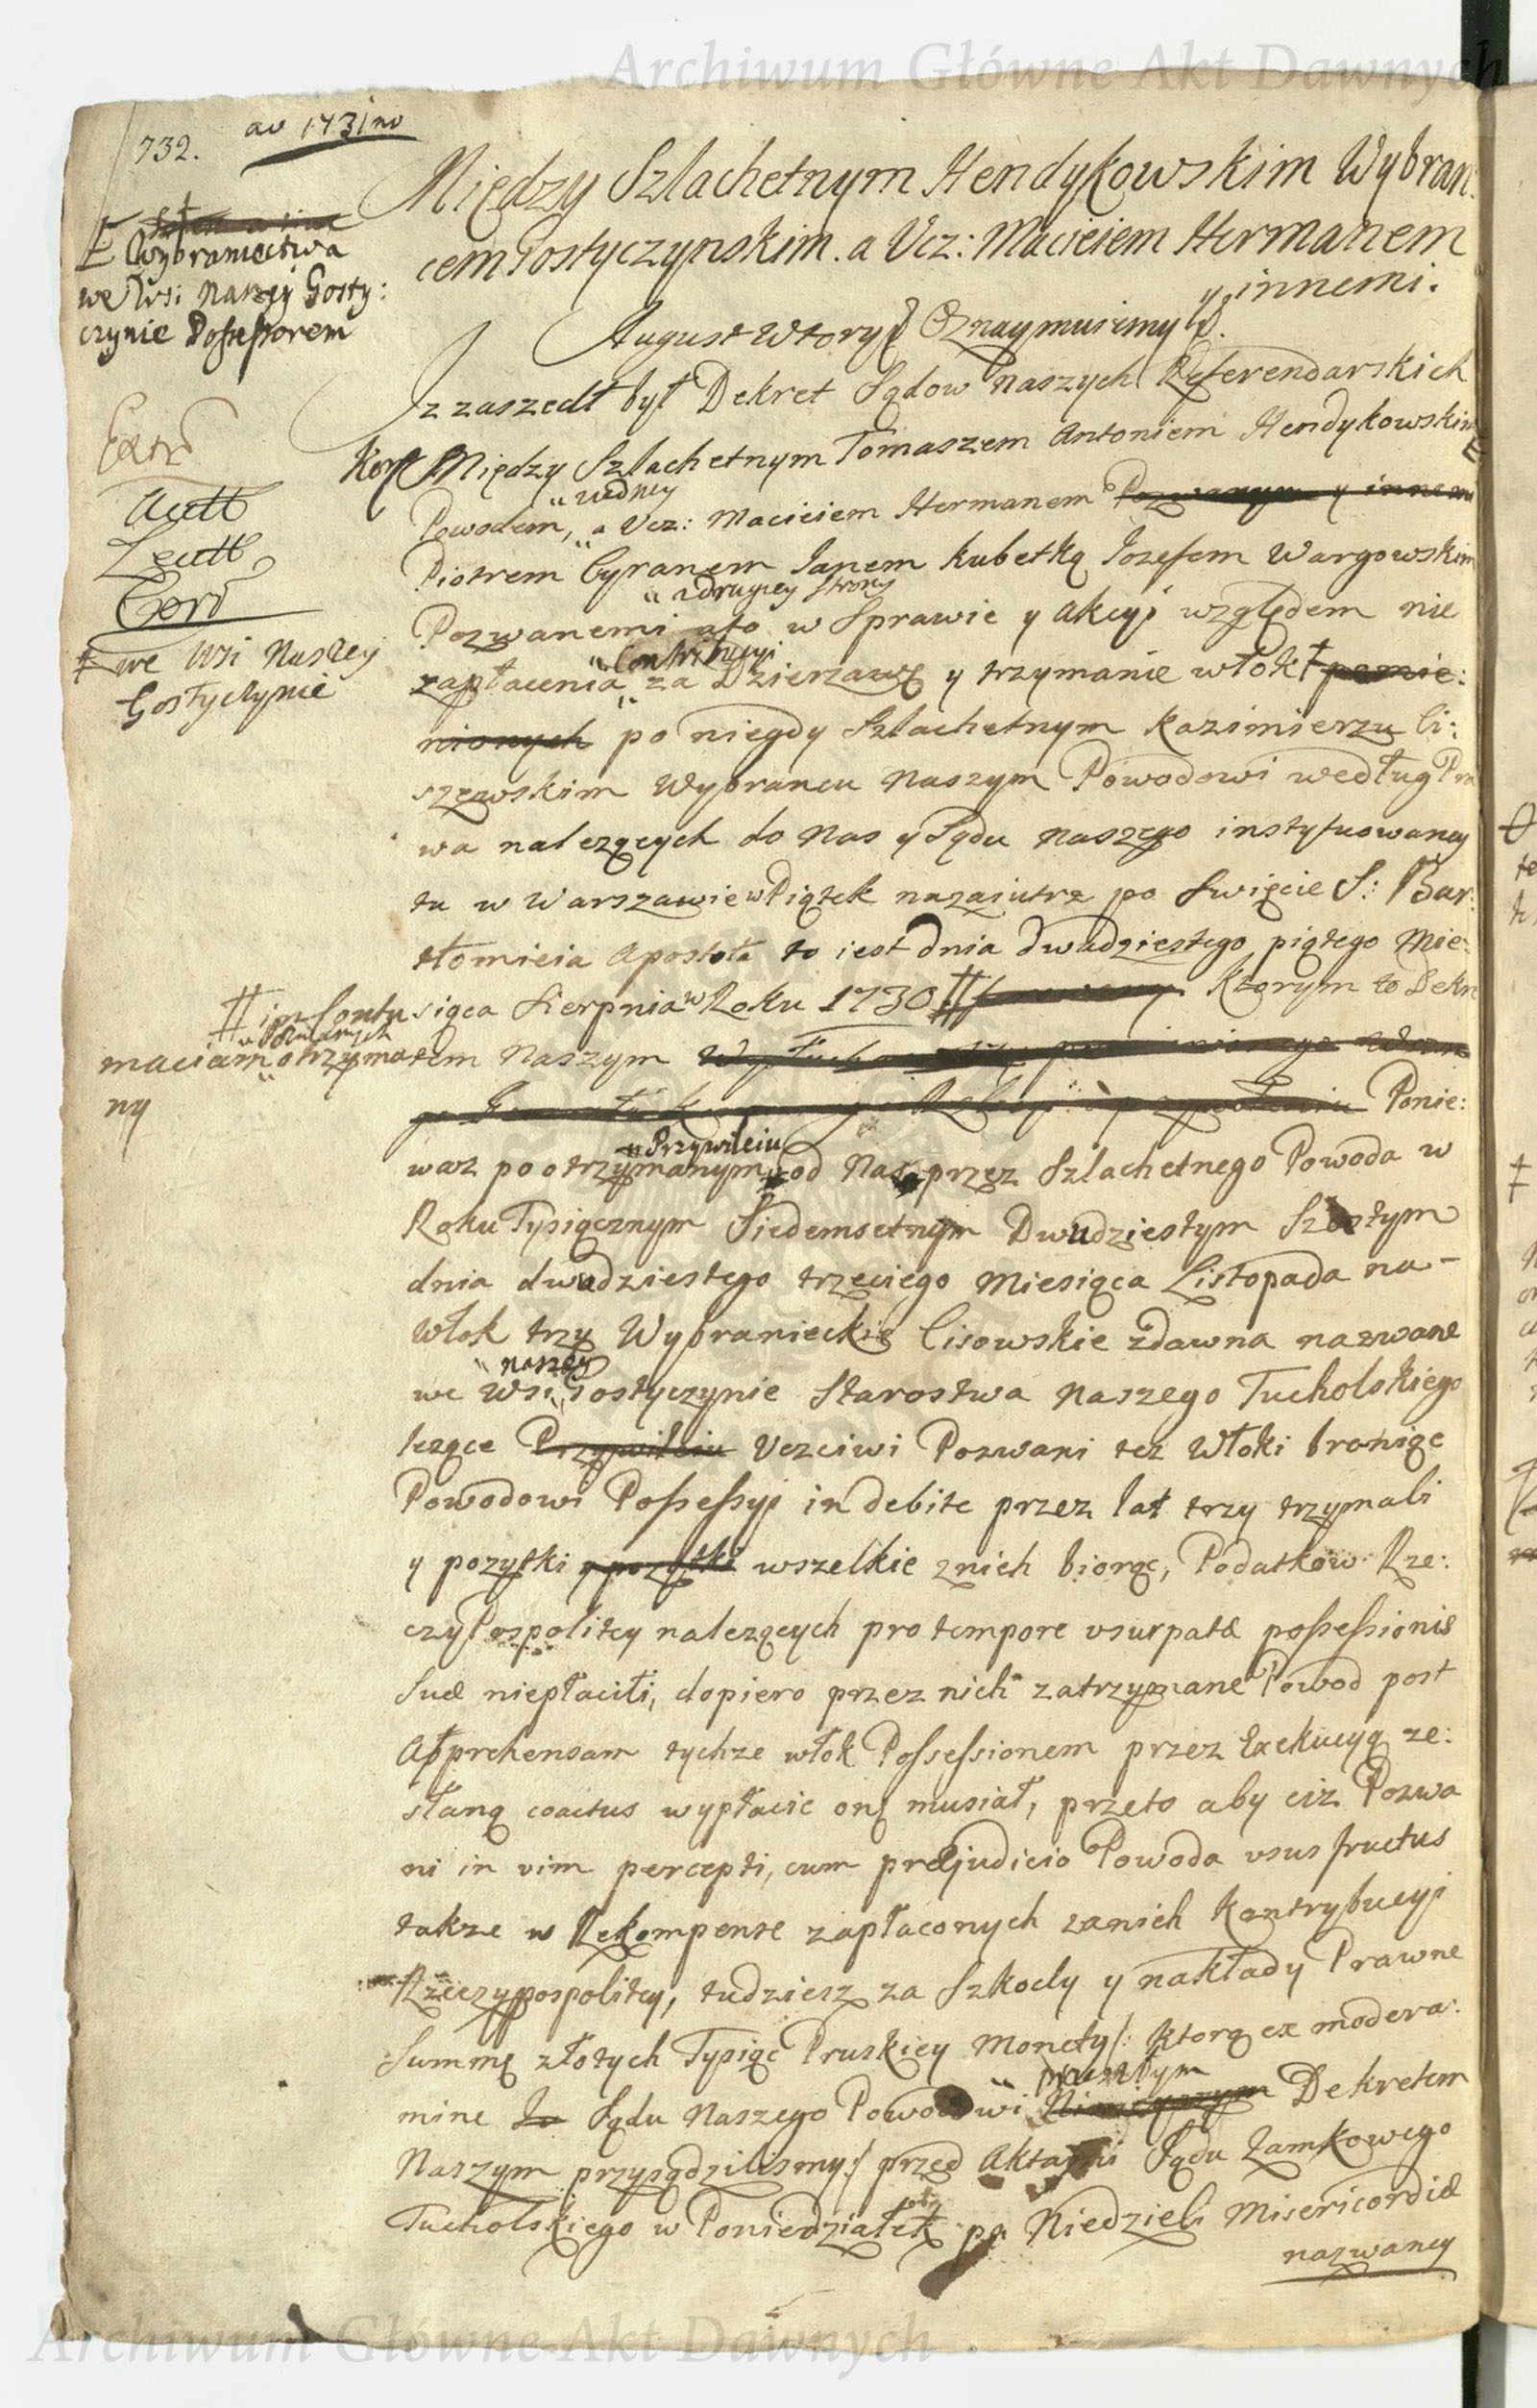 Archiwum Główne Akt Dawnych
732.
ao 1731no
Między Szlachetnym Hendykowskim Wybran:
cem Gostyczynskim. a Ucz: Macieiem Hermanem
y innemi.
August Wtory Oznaymuiemy
Iz zaszedł był Dekret Sądow Naszych Referendarskich
Kor Między Szlachetnym Tomaszem Antoniem Hendykowskim
E Wybraniectwa
we Wsi Naszey Gosty:
czynie Possessorem
z iedney
Powodem, a Ucz: Macieiem Hermanem Pozwanym y innemi
Piotrem Cyranem Janem Kubetką Iozefem Wargowskim
z drugiey strony
Pozwanemi ato w Sprawie y Akcyi względem nie
Contribucyi
zapłacenia za Dzierzawę y trzymanie włok ‡ pomie:
‡ we Wsi Naszey
Gostyczynie
nionych po niegdy Szlachetnym Kazimierzu Ci:
szewskim Wybrancu Naszym Powodowi według Pra
wa nalezących do Nas y Sądu Naszego instytuowaney
tu w Warszawie w Piątek nazaiutrz po Swięcie S: Bar:
tłomieia Apostoła to iest dnia dwadziestego piątego Mie:
siąca Sierpnia w Roku 1730 # Ktorym to Dekre
# in Contu
maciam Pozwanych otrzyma
ny
tem Naszym
Ponie:
Przywileiu
waz po otrzymanym od Nas przez Szlachetnego Powoda w
Roku Tysiącznym Siedemsetnym Dwudziestym Szostym
dnia dwudziestego trzeciego Miesiąca Listopada na-
włok trzy Wybranieckie Cisowskie zdawna nazwane
naszey
we Wsi Gostyczynie Starostwa Naszego Tucholskiego
lezące Przywileiu Uczciwi Pozwani tez Włoki broniąc
Powodowi Possessyi indebite przez lat trzy trzymali
y pozytki y pozytki wszelkie znich biorąc, Podatkow Rze:
czyPospolitey nalezących pro tempore usurpatæ possessionis
suæ niepłacili, dopiero przez nich zatrzymane Powod post
Apprehensam tychze włok Possessionem przez Exekucyą ze:
słaną coactus wypłacic one musiał, przeto aby ciz Pozwa
ni in vim percepti, cum præjudicio Powoda ususfructus
takze w Rekompense zapłaconych zanich Kontrybucyi
Rzeczypospolitey, tudziesz za Szkody y nakłady Prawne
Summę złotych Tysiąc Pruskiey Monety /: ktorą ex modera:
przeszłym
mine Sądu Naszego Powodowi Ninieyszym Dekretem
Naszym przysądzilismy :/ przed Aktami Sądu Zamkowego
Tucholskiego w Poniedziałek po Niedzieli Misericordiæ
nazwaney
Archiwum Główne Akt Dawnych